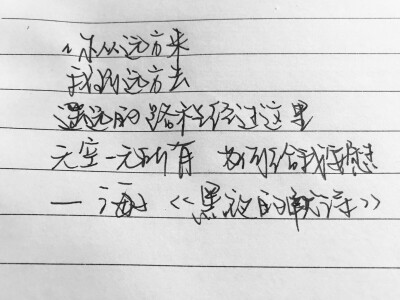 你从远方来
我到远方去
遥远的路程经过这里
天空一无所有 为何给我安慰
— 海子《黑夜的献诗》